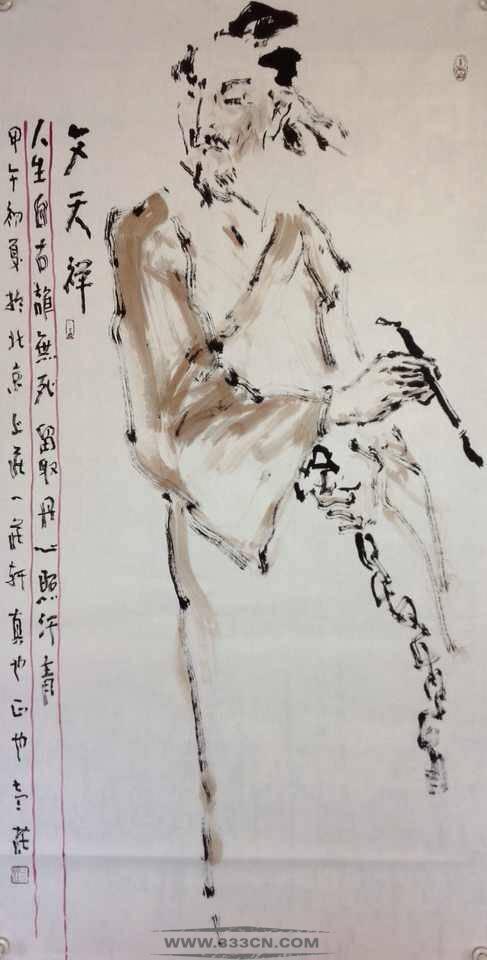 文天祥
人生自古谁無死 留取丹心照汗青
甲午初夏於北京上庄一庄轩真也正也
WWW.833CN.COM